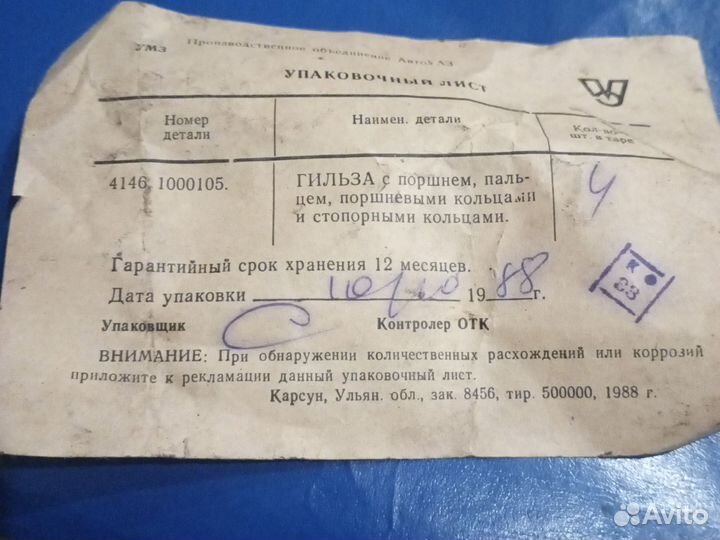 УМЗ Производственное объединение АвтоУАЗ
УПАКОВОЧНЫЙ ЛИСТ
Номер детали
Наимен. детали
Кол-во шт. в таре
4146 1000105.
ГИЛЬЗА с поршнем, паль-
цем, поршневыми кольцами
и стопорными кольцами.
4
Гарантийный срок хранения 12 месяцев.
Дата упаковки 1988г.
К
Упаковщик
Контролер ОТК
ВНИМАНИЕ: При обнаружении количественных расхождений или коррозий
приложите к рекламации данный упаковочный лист.
Қарсун, Ульян. обл., зак. 8456, тир. 500000, 1988 г.
Avito